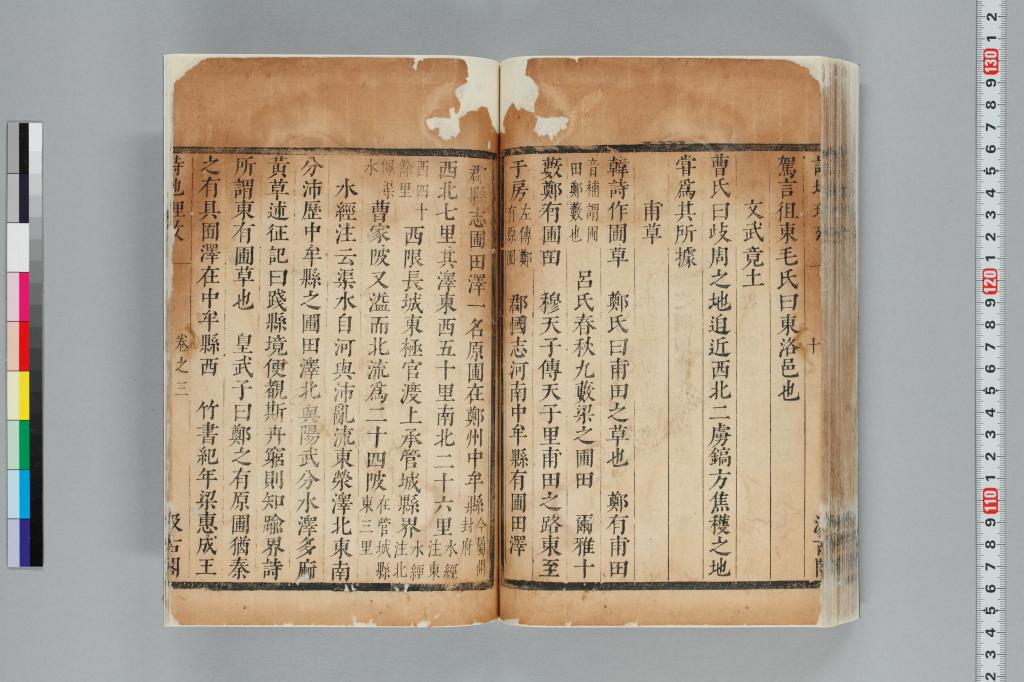 駕言徂東毛氏曰東洛邑也
文武竟土
曹氏曰歧周之地迫近西北二虜鎬方焦穫之地
甞爲其所據
甫草
韓詩作圃草　鄭氏曰甫田之草也　鄭有甫田
音補謂圃田鄭藪也　呂氏春秋九藪梁之圃田　爾雅十
藪鄭有圃田　穆天子傳天子里甫田之路東至
于房左傳鄭有原圃　郡國志河南中牟縣有圃田澤
郡縣志圃田澤一名原圃在鄭州中牟縣今屬開封府
西北七里其澤東西五十里南北二十六里水經注東
西四十餘里　西限長城東極官渡上承管城縣界水經注北
佩渠水　曹家陂又溢而北流爲二十四陂在管城縣東三里
水經注云渠水自河與沛亂流東滎澤北東南
分沛歷中牟縣之圃田澤北與陽武分水澤多麻
黃草述征記曰踐縣境便覩斯卉窮則知踰界詩
所謂東有圃草也　皇武子曰鄭之有原圃猶秦
之有具囿澤在中牟縣西　竹書紀年梁惠成王
詩地理攷　一　卷之三　汲古閣